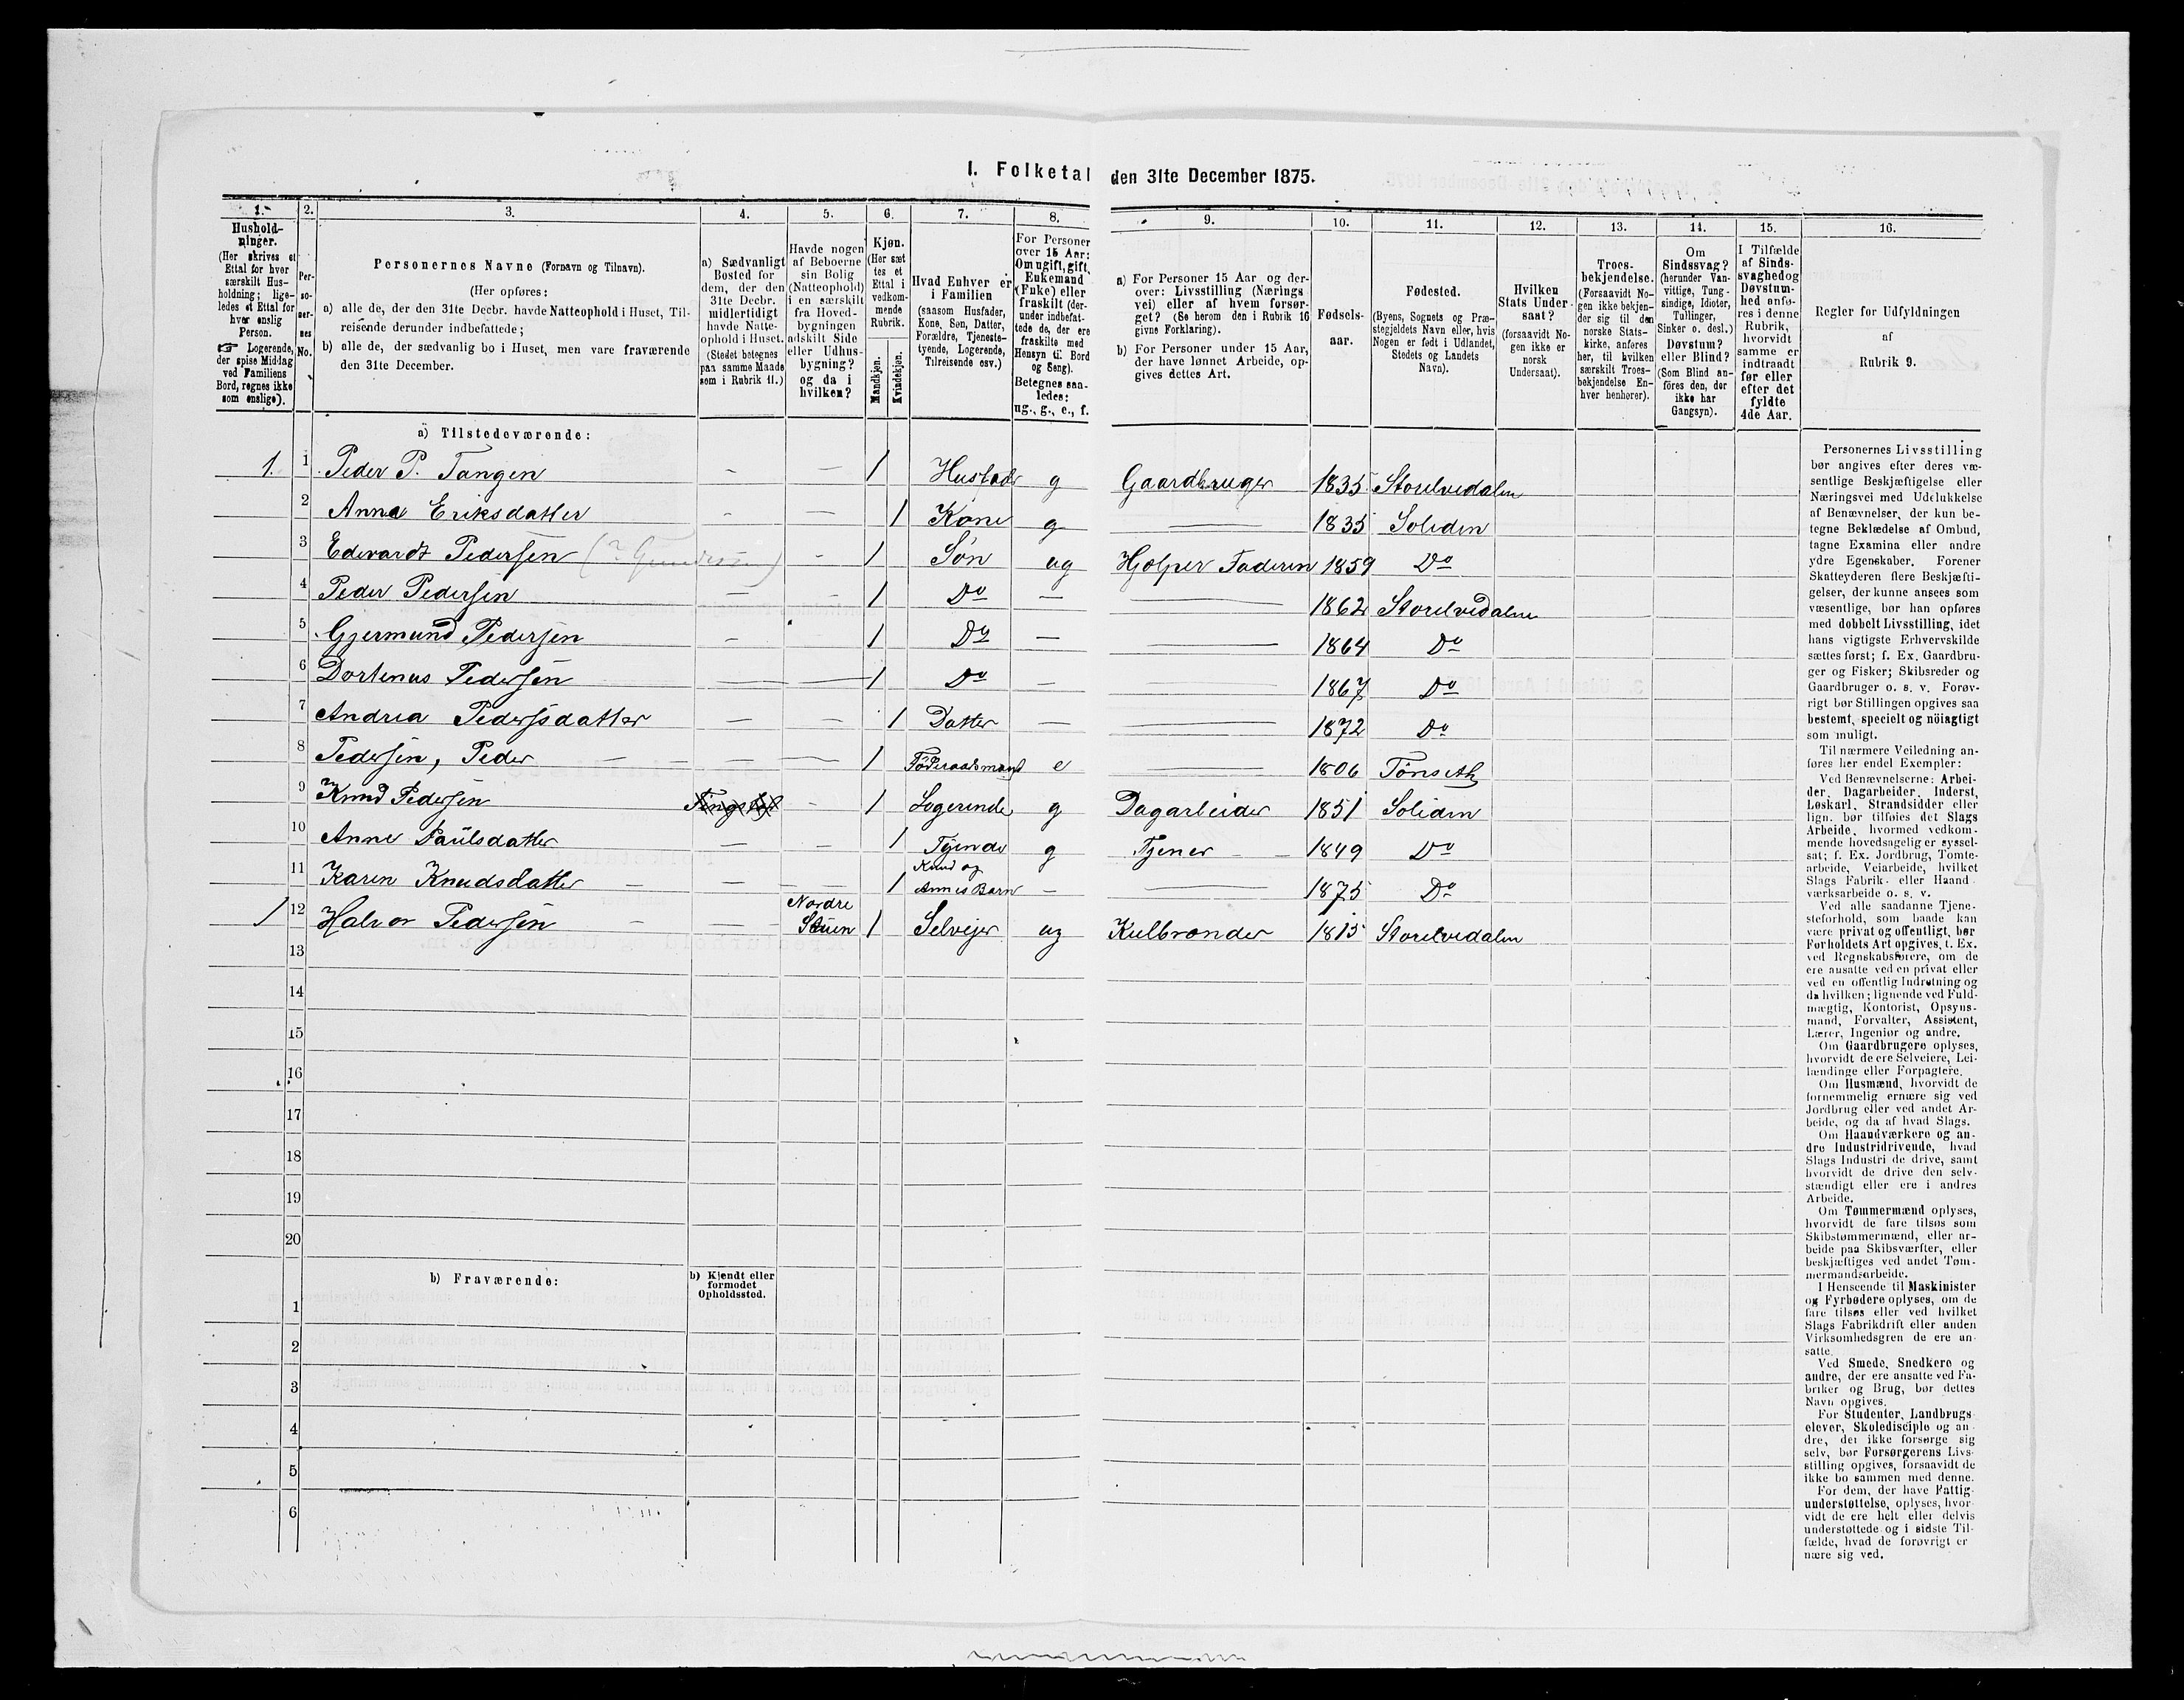 I. Folketal den 31te December 1875.
1. 2. 3. 4. 5. 6. 7. 8. 9. 10. 11. 12. 13. 14. 15. 16.
Hushold-
ninger.
(Her skrives et
Ettal for hver
særskilt Hus-
holdning; lige-
ledes et Ettal for
hver enslig
Person.
☞ Logerende,
der spise Middag
ved Familiens
Bord, regnes ikke
som enslige).
Per-
so-
ner-
nes
No.
Personernes Navne (Fornavn og Tilnavn).
(Her opføres:
a) alle de, der den 31te Decbr. havde Natteophold i Huset, Til-
reisende derunder indbefattede;
b) alle de, der sædvanlig bo i Huset, men vare fraværende
den 31te December.
a) Sædvanligt
Bosted for
dem, der den
31te Decbr.
midlertidigt
havde Natte-
ophold i Huset.
(Stedet betegnes
paa samme Maade
som i Rubrik 11.)
Havde nogen
af Beboerne
sin Bolig
(Natteophold)
i en særskilt
fra Hoved-
bygningen
adskilt Side
eller Udhus-
bygning?
og da i
hvilken?
Kjøn.
(Her sæt
tes et
Ettal i
vedkom-
mende
Rubrik.
Mandkjøn.
Kvindekjøn.
Hvad Enhver er
i Familien
(saasom Husfader,
Kone, Søn, Datter,
Forældre, Tjeneste-
tyende, Logerende,
Tilreisende osv.)
For Personer
over 15 Aar:
Om ugift, gift,
Enkemand
(Enke) eller
fraskilt (der-
under indbefat-
tede de, der ere
fraskilte med
Hensyn til Bord
og Seng).
Betegnes saa-
ledes:
ug., g., e., f.
a) For Personer 15 Aar og der-
over: Livsstilling (Nærings
vei) eller af hvem forsør-
get? (Se herom den i Rubrik 16
givne Forklaring).
b) For Personer under 15 Aar,
der have lønnet Arbeide, op-
gives dettes Art.
Fødsels-
aar.
Fødested.
(Byens, Sognets og Præ-
stegjeldets Navn eller, hvis
Nogen er født i Udlandet,
Stedets og Landets
Navn).
Hvilken
Stats Under-
saat?
(forsaavidt No-
gen ikke er
norsk
Undersaat).
Troes-
bekjendelse.
(Forsaavidt No-
gen ikke bekjen-
der sig til den
norske Stats-
kirke, anføres
her, til hvilken
særskilt Troes-
bekjendelse En-
hver henhører).
Om
Sindssvag?
(herunder Van-
vittige, Tung-
sindige, Idioter,
Tullinger,
Sinker o. desl.)
Døvstum?
eller Blind?
(Som Blind an-
føres den, der
ikke har
Gangsyn).
I Tilfælde
af Sinds-
svaghed og
Døvstum-
hed anfø-
res i denne
Rubrik,
hvorvidt
samme er
indtraadt
før eller
efter det
fyldte
4de Aar.
Regler for Udfyldningen
af
Rubrik 9.
a) Tilstedeværende:
1. 1 Peder P. Tangen – – 1 Husfader g Gaardbruger 1835 Storelvedalen
2 Anne Eriksdatter – – 1 Kone g — 1835 Soliden
3 Edevardt Pedersen – 1 Søn ug Hjælper Faderen 1859 Do
4 Peder Pedersen – – 1 Do – — 1862 Storelvedalen
5 Gjermund Pedersen – 1 Do – — 1864 Do
6 Dortenus Pedersen – – 1 Do – — 1867 Do
7 Andrea Pedersdatter – – 1 Datter – — 1872 Do
8 Pedersen, Peder – – – 1 Föderaadsmand e — 1806 Tönseth
9 Knud Pedersen – 1 Logerende g Dagarbeider 1851 Soliden
10 Anne Paulsdatter – – 1 Tyende g Tjener – 1849 Do
11 Karen Knudsdatter – – – 1 Knud og Annes Barn – — 1875 Do
1 12 Halvor Pedersen – – Nordre Stuen 1 Selvejer ug Kulbrænder 1815 Storelvedalen
13
14
15
16
17
18
19
20
b) Fraværende:
b) Kjendt eller
formodet
Opholdssted.
1
2
3
4
5
6
Personernes Livsstilling
bør angives efter deres væ-
sentlige Beskjæftigelse eller
Næringsvei med Udelukkelse
af Benævnelser, der kun be-
tegne Beklædelse af Ombud,
tagne Examina eller andre
ydre Egenskaber. Forener
Skatteyderen flere Beskjæfti-
gelser, der kunne ansees som
væsentlige, bør han opføres
med dobbelt Livsstilling, idet
hans vigtigste Erhvervskilde
sættes først; f. Ex. Gaardbru-
ger og Fisker; Skibsreder og
Gaardbruger o. s. v. Forøv-
rigt bør Stillingen opgives saa
bestemt, specielt og nöiagtigt
som muligt.
Til nærmere Veiledning an-
føres her endel Exempler:
Ved Benævnelserne: Arbei-
der, Dagarbeider, Inderst,
Løskarl, Strandsidder eller
lign. bør tilføies det Slags
Arbeide, hvormed vedkom-
mende hovedsagelig er syssel-
sat; f. Ex. Jordbrug, Tomte-
arbeide, Veiarbeide, hvilket
Slags Fabrik- eller Haand-
værksarbeide o. s. v.
Ved alle saadanne Tjene-
steforhold, som baade kan
være privat og offentligt, bør
Forholdets Art opgives, t. Ex.
ved Regnskabsførere, om de
ere ansatte ved en privat eller
ved en offentlig Indretning og
da hvilken; lignende ved Fuld-
mægtig, Kontorist, Opsyns-
mand, Forvalter, Assistent,
Lærer, Ingeniør og andre.
Om Gaardbrugere oplyses,
hvorvidt de ere Selveiere, Lei-
lændinge eller Forpagtere.
Om Husmænd, hvorvidt de
fornemmelig ernære sig ved
Jordbrug eller ved andet Ar-
beide, og da af hvad Slags.
Om Haandværkere og an-
dre Industridrivende, hvad
Slags Industri de drive, samt
hvorvidt de drive den selv-
stændigt eller ere i andres
Arbeide.
Om Tømmermænd oplyses,
hvorvidt de fare tilsøs som
Skibstømmermænd, eller ar-
beide paa Skibsværfter, eller
beskjæftiges ved andet Tøm-
mermandsarbeide.
I Henseende til Maskinister
og Fyrbødere oplyses, om de
fare tilsøs eller ved hvilket
Slags Fabrikdrift eller anden
Virksomhedsgren de ere an-
satte.
Ved Smede, Snedkere og
andre, der ere ansatte ved Fa-
briker og Brug, bør dettes
Navn opgives.
For Studenter, Landbrugs-
elever, Skoledisciple og an-
dre, der ikke forsørge sig
selv, bør Forsørgerens Livs-
stilling opgives, forsaavidt de
ikke bo sammen med denne.
For dem, der have Fattig-
understøttelse, oplyses, hvor-
vidt de ere helt eller delvis
understøttede og i sidste Til-
fælde, hvad de forøvrigt er
nære sig ved.